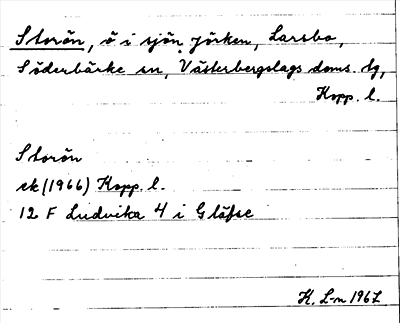 Storön, ö i sjön Jörken, Larsbo,
Söderbärke sn, Västerbergslags doms. tg,
Kopp. l.
Storön
ek (1966) Kopp. l.
12 F Ludvika 4 i Gläfse
K. L-n 1967